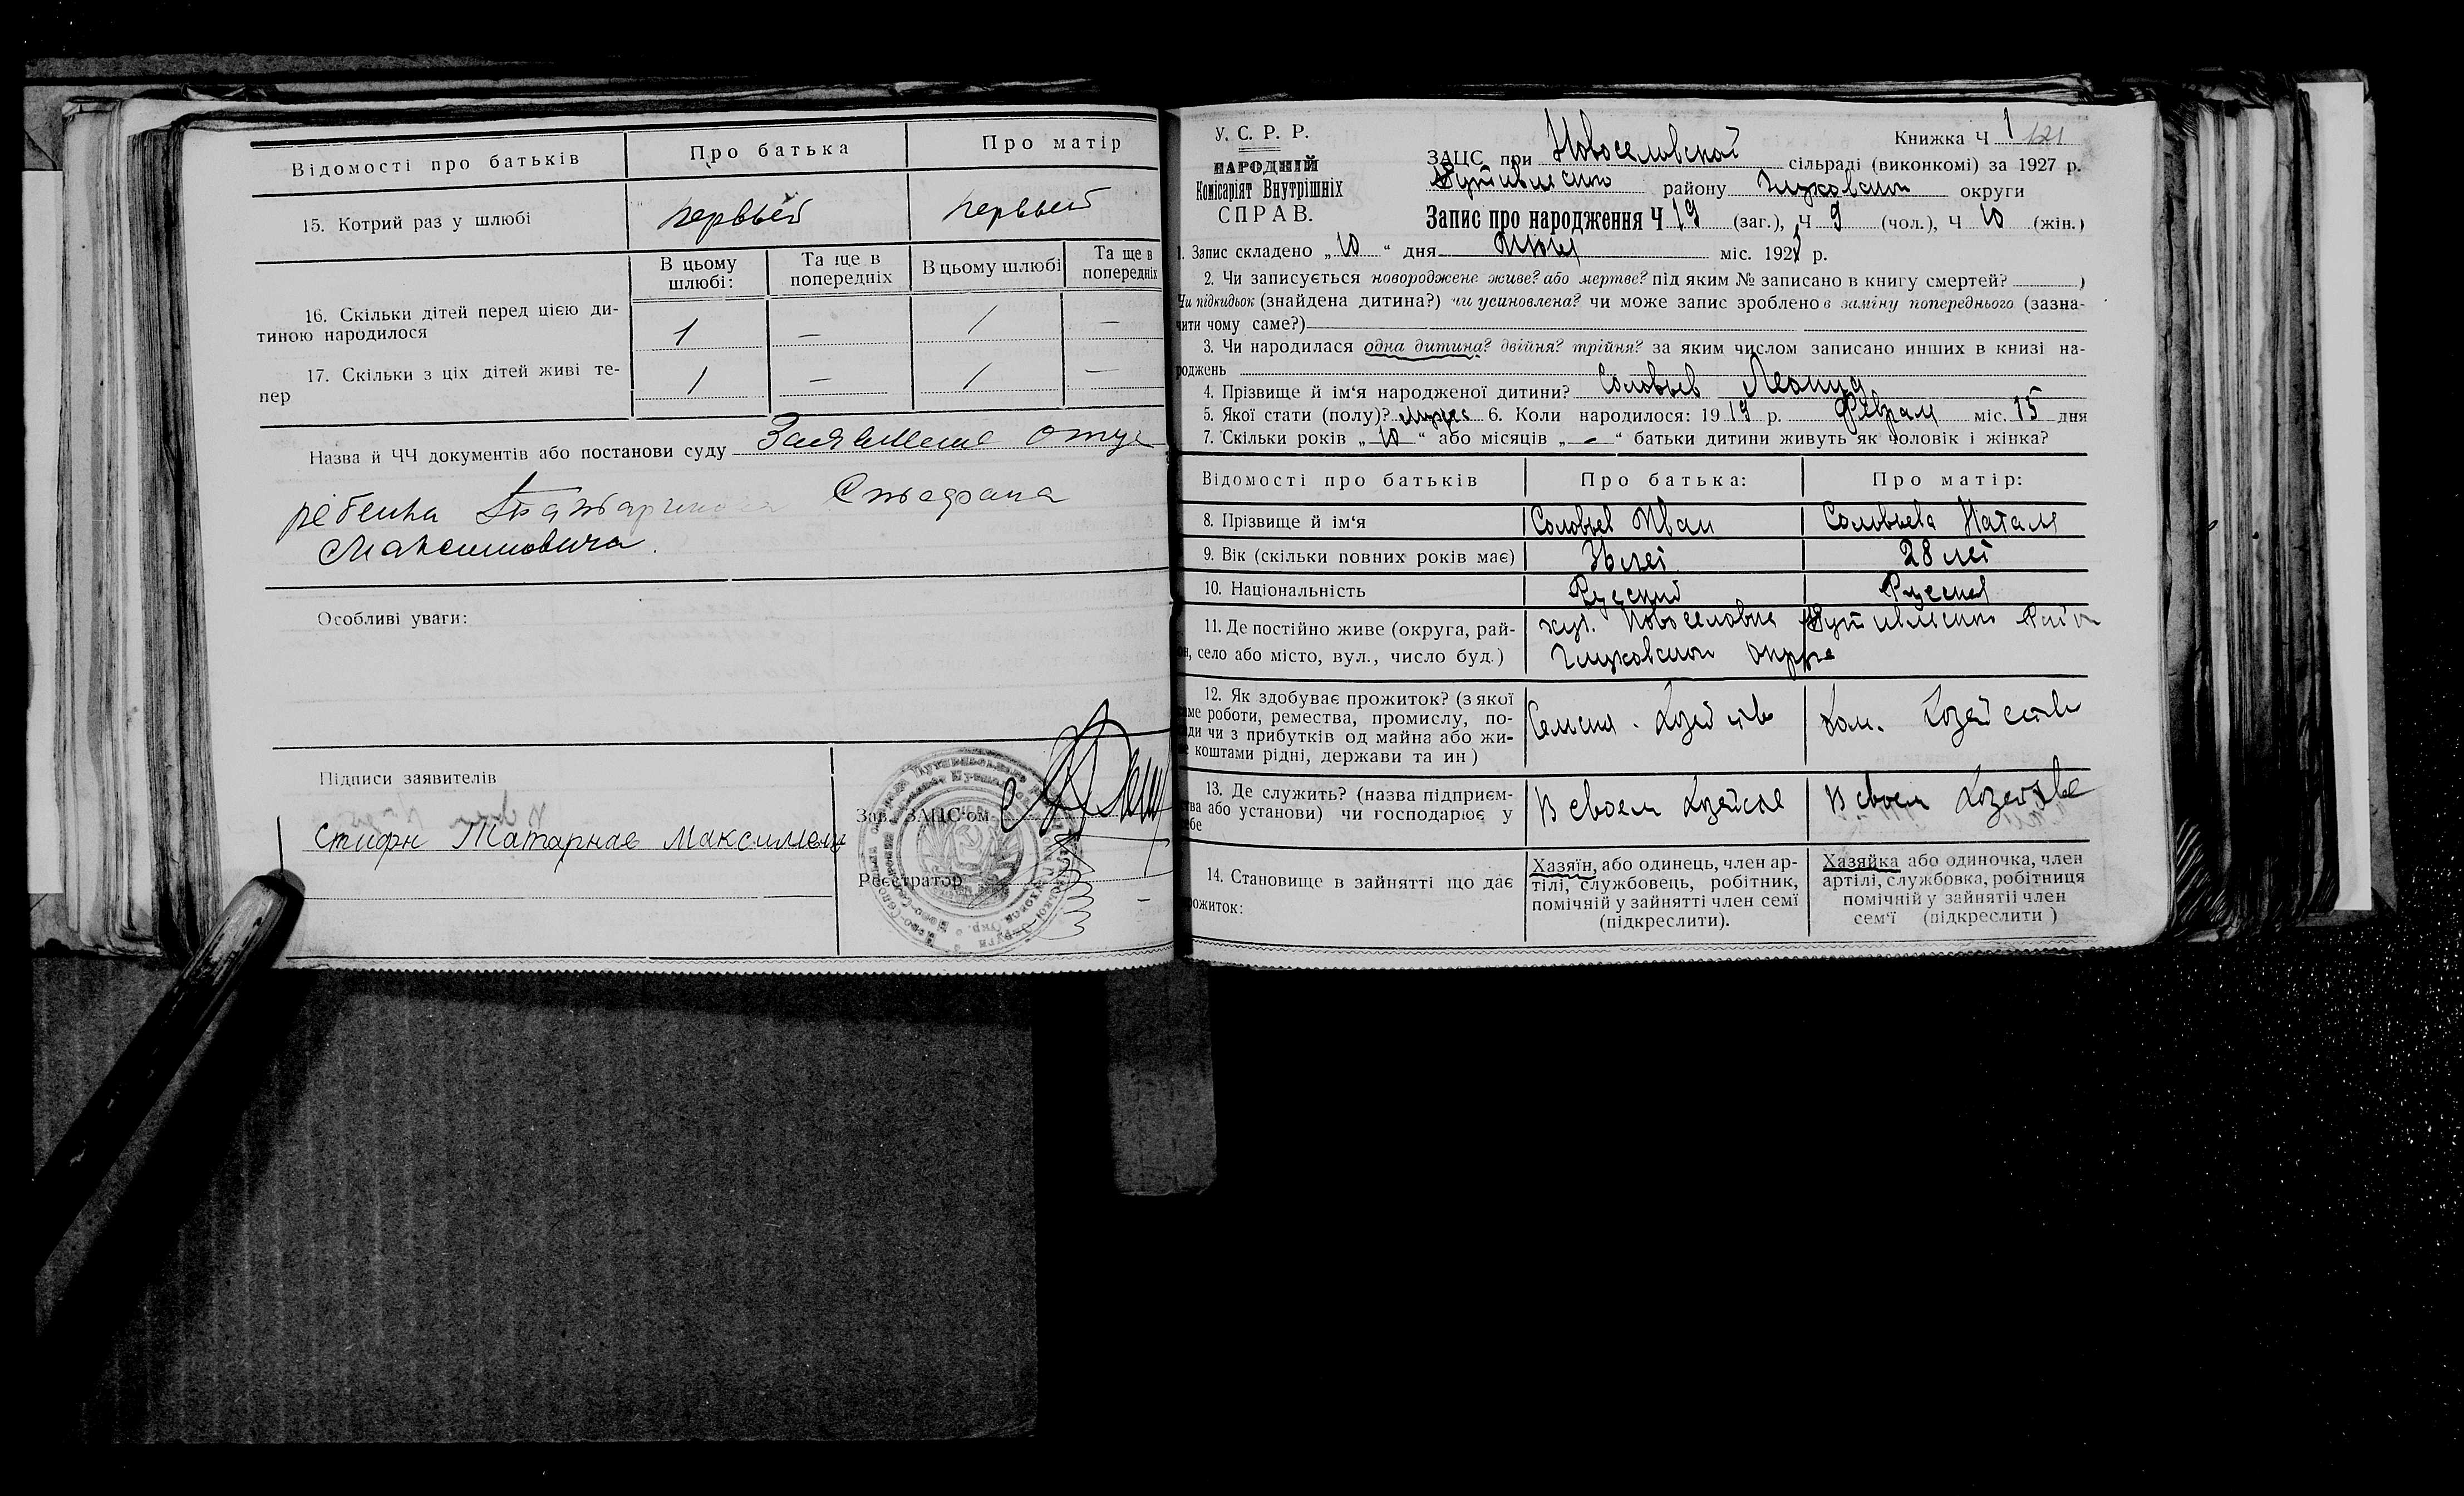 Відомості про батьків Про батька Про матір
15. Котрий раз у шлюбі первый первый
В цьому шлюбі: Та ще в попередніх В цьому шлюбі Та ще в попередніх
16. Скільки дітей перед цією ди-
тиною народилося 1 — 1 —
17. Скільки з ціх дітей живі те-
пер 1 — 1 —
Назва й ЧЧ документів або постанови суду Заявление отца
ребенка Татаринова Стефана
Максимовича.
Особливі уваги:
Підписи заявителів
Зав. ЗАЦС'ом
Стифн Татарнав Максимов
Реєстратор
У. С. Р. Р.
НАРОДНІЙ
Комісаріят Внутрішніх
СПРАВ.
Книжка Ч 1 121
ЗАЦС при Новоселовской сільраді (виконкомі) за 1927 р.
Путивлсько району Глуховской округи
Запис про народження Ч 19 (заг.), Ч 9 (чол.), Ч 10 (жін.)
1. Запис складено „10“ дня міс. 192 р.
2. Чи записується новороджене живе? або мертве? під яким № записано в книгу смертей? )
Чи підкидьок (знайдена дитина?) чи усиновлена? чи може запис зроблено в заміну попереднього (зазна-
чити чому саме?)
3. Чи народилася одна дитина? двійня? трійня? за яким числом записано инших в книзі на-
роджень
4. Прізвище й ім‘я народженої дитини? Соловьев Леонид
5. Якої стати (полу)? мужс 6. Коли народилося: 1919 р. Феврал міс. 15 дня
7. Скільки років „10“ або місяців „-“ батьки дитини живуть як чоловік і жінка?
Відомості про батьків Про батька: Про матір:
8. Прізвище й ім‘я Соловьев Иван Соловьева Наталя
9. Вік (скільки повних років має) лет 28 лет
10. Національність Русский Русская
11. Де постійно живе (округа, рай-
он, село або місто, вул., число буд.)
хут. Новоселовка Путивлского Район
Глуховской округа
12. Як здобуває прожиток? (з якої
саме роботи, ремества, промислу, по-
сади чи з прибутків од майна або жи-
ве коштами рідні, держави та ин )
Сельск. Хозяйство Дом. Хозяйство
13. Де служить? (назва підприєм-
ства або установи) чи господарює у
себе
В своем Хозяйстве В своем Хозяйстве
14. Становище в зайнятті що дає
прожиток:
Хазяїн, або одинець, член ар-
тілі, службовець, робітник,
помічній у зайнятті член семї
(підкреслити).
Хазяйка або одиночка, член
артілі, службовка, робітниця
помічній у зайнятіі член
сем‘ї (підкреслити )